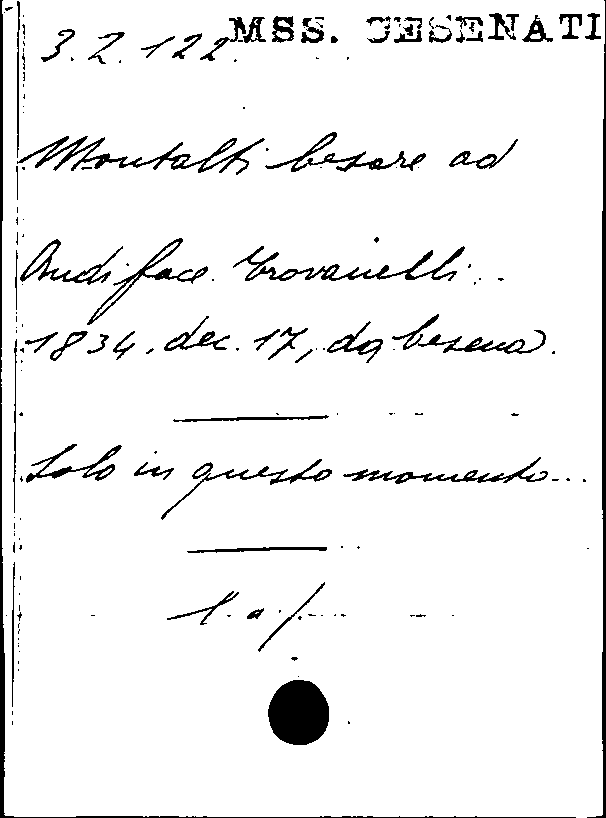 3.2.122. MSS. CESENATI
Montalti Cesare ad
Audiface Trovanelli..
1834, dec. 17, da Cesena.
Solo in questo momento...
l. a. f.